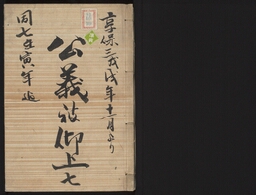 享保三戌年十一月より
公義被仰上七
同七年寅年迄